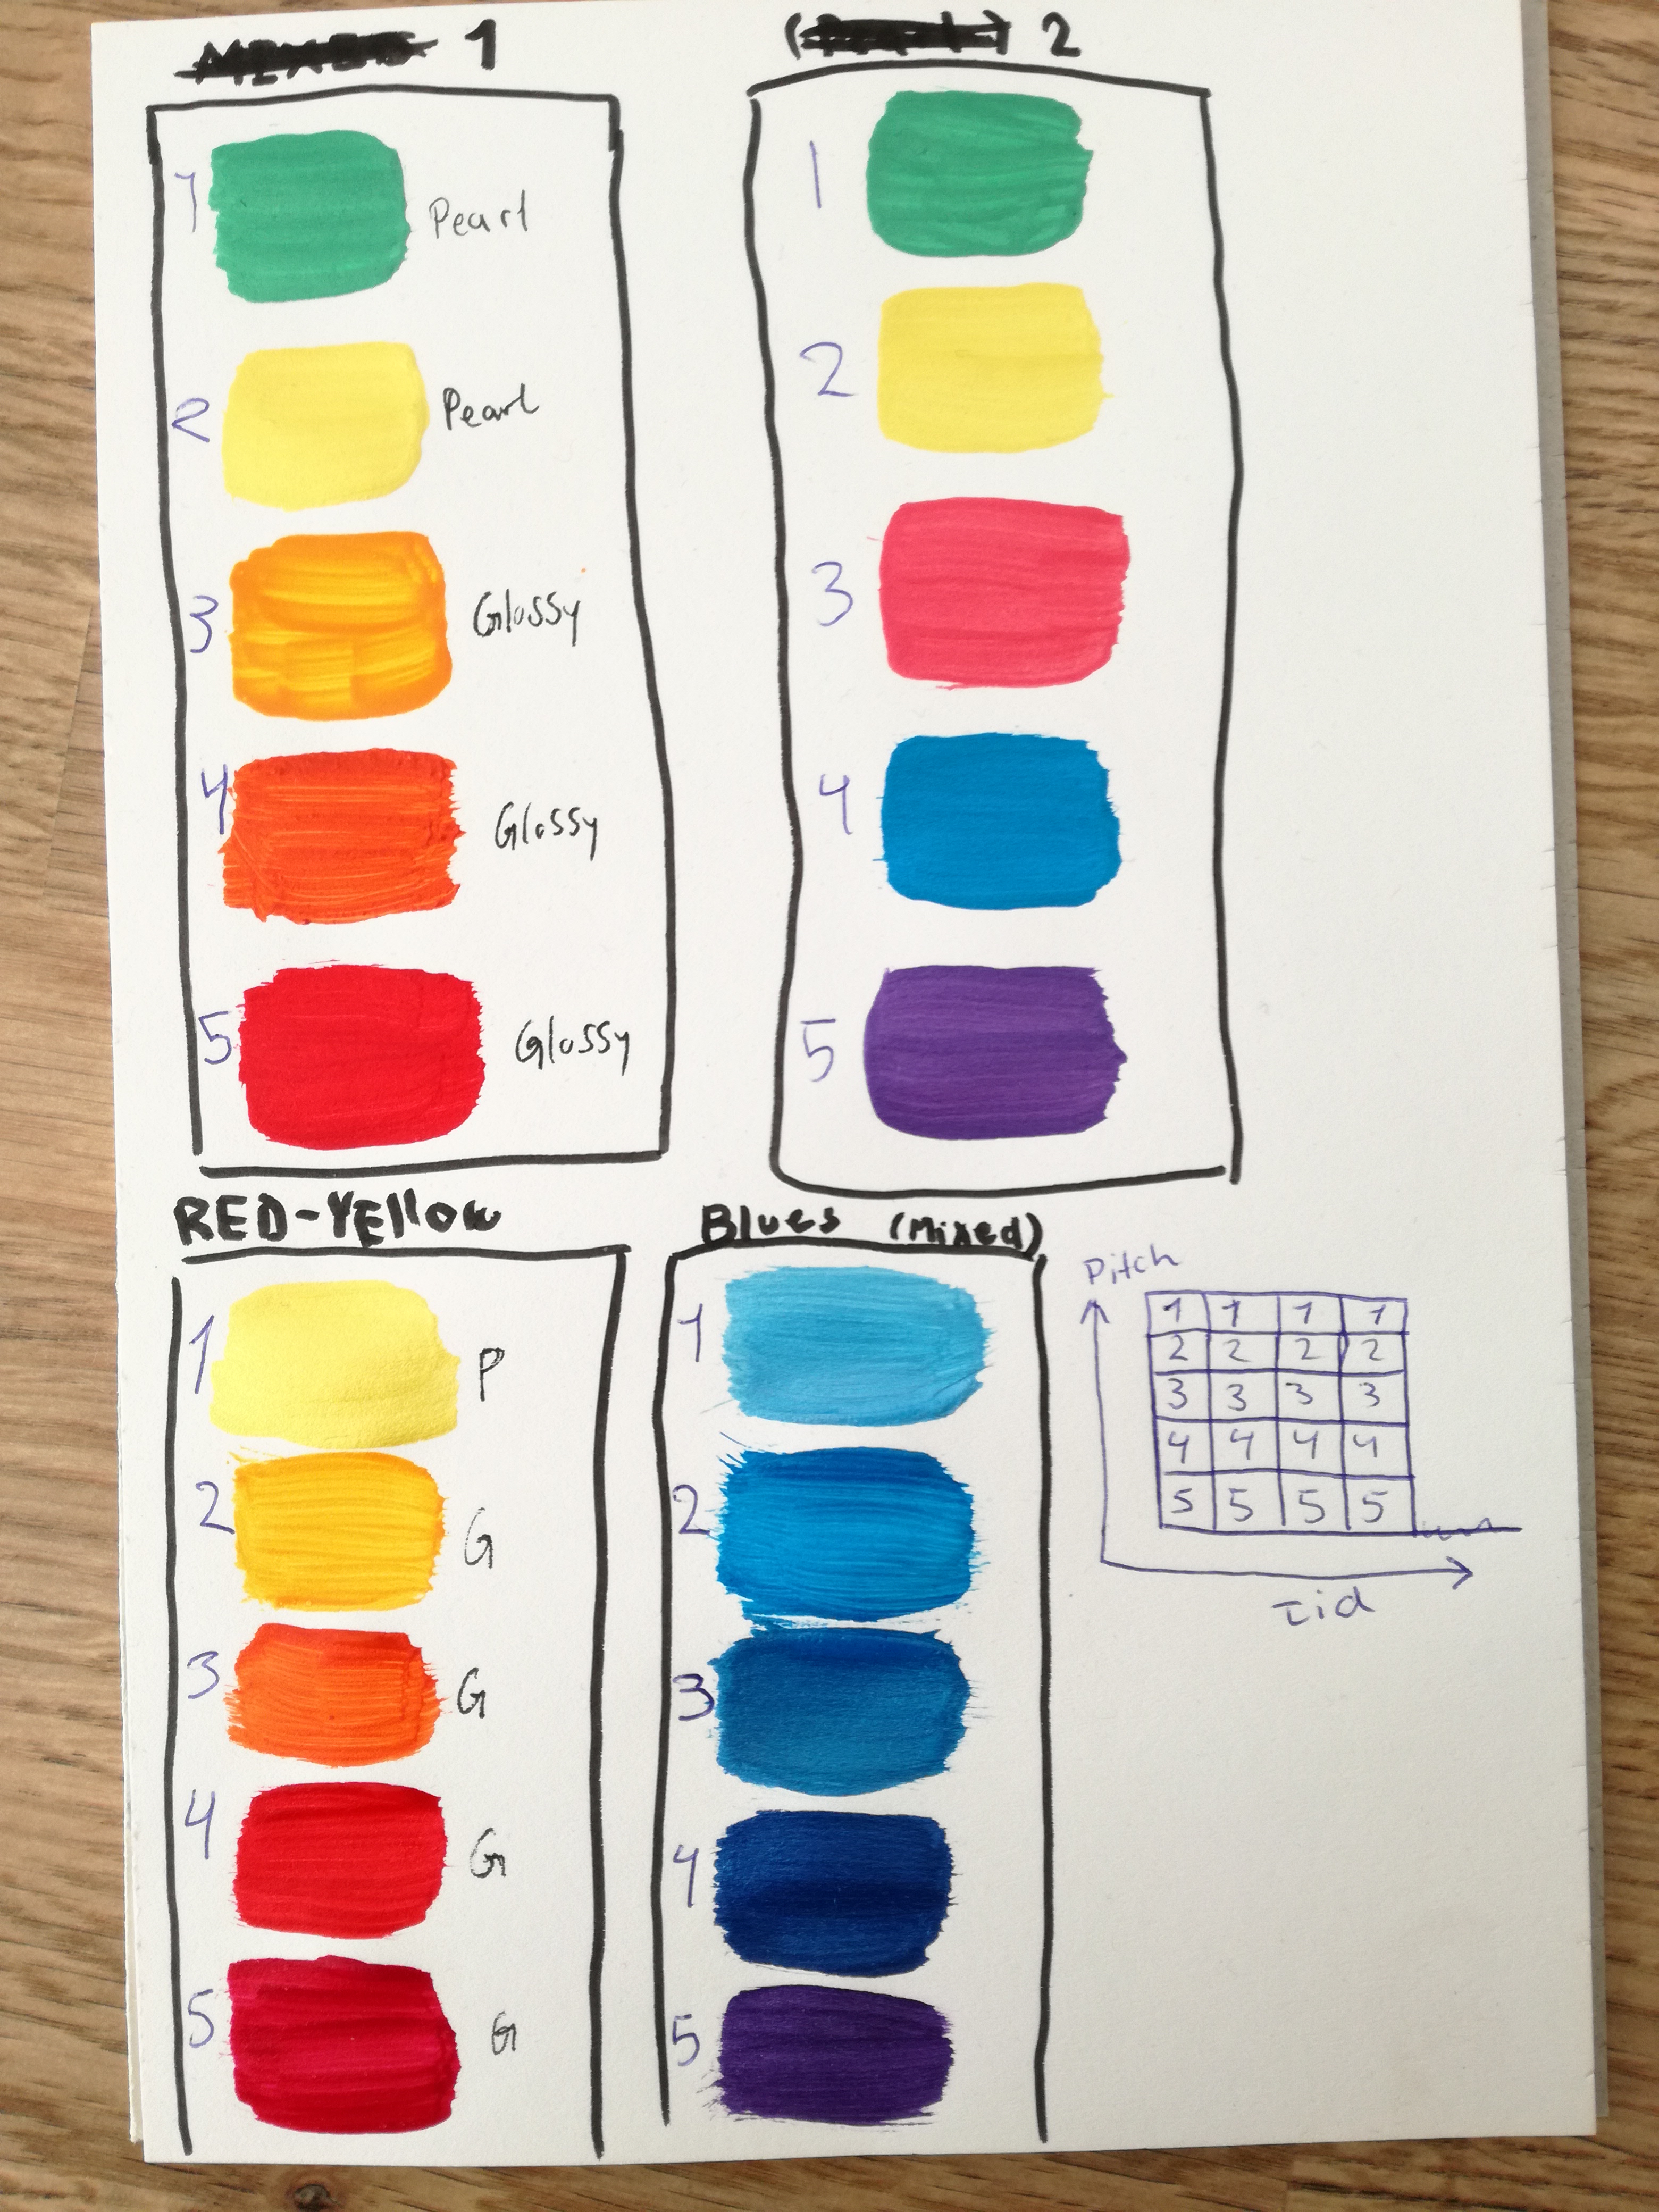 1
1 Pearl
2 Pearl
3 Glossy
4 Glossy
5 Glossy
2
1
2
3
4
5
RED-YEllow
1 P
2 G
3 G
4 G
5 G
Blues (Mixed)
1
2
3
4
5
Pitch
1 1 1 1
2 2 2 2
3 3 3 3
4 4 4 4
5 5 5 5
Tid